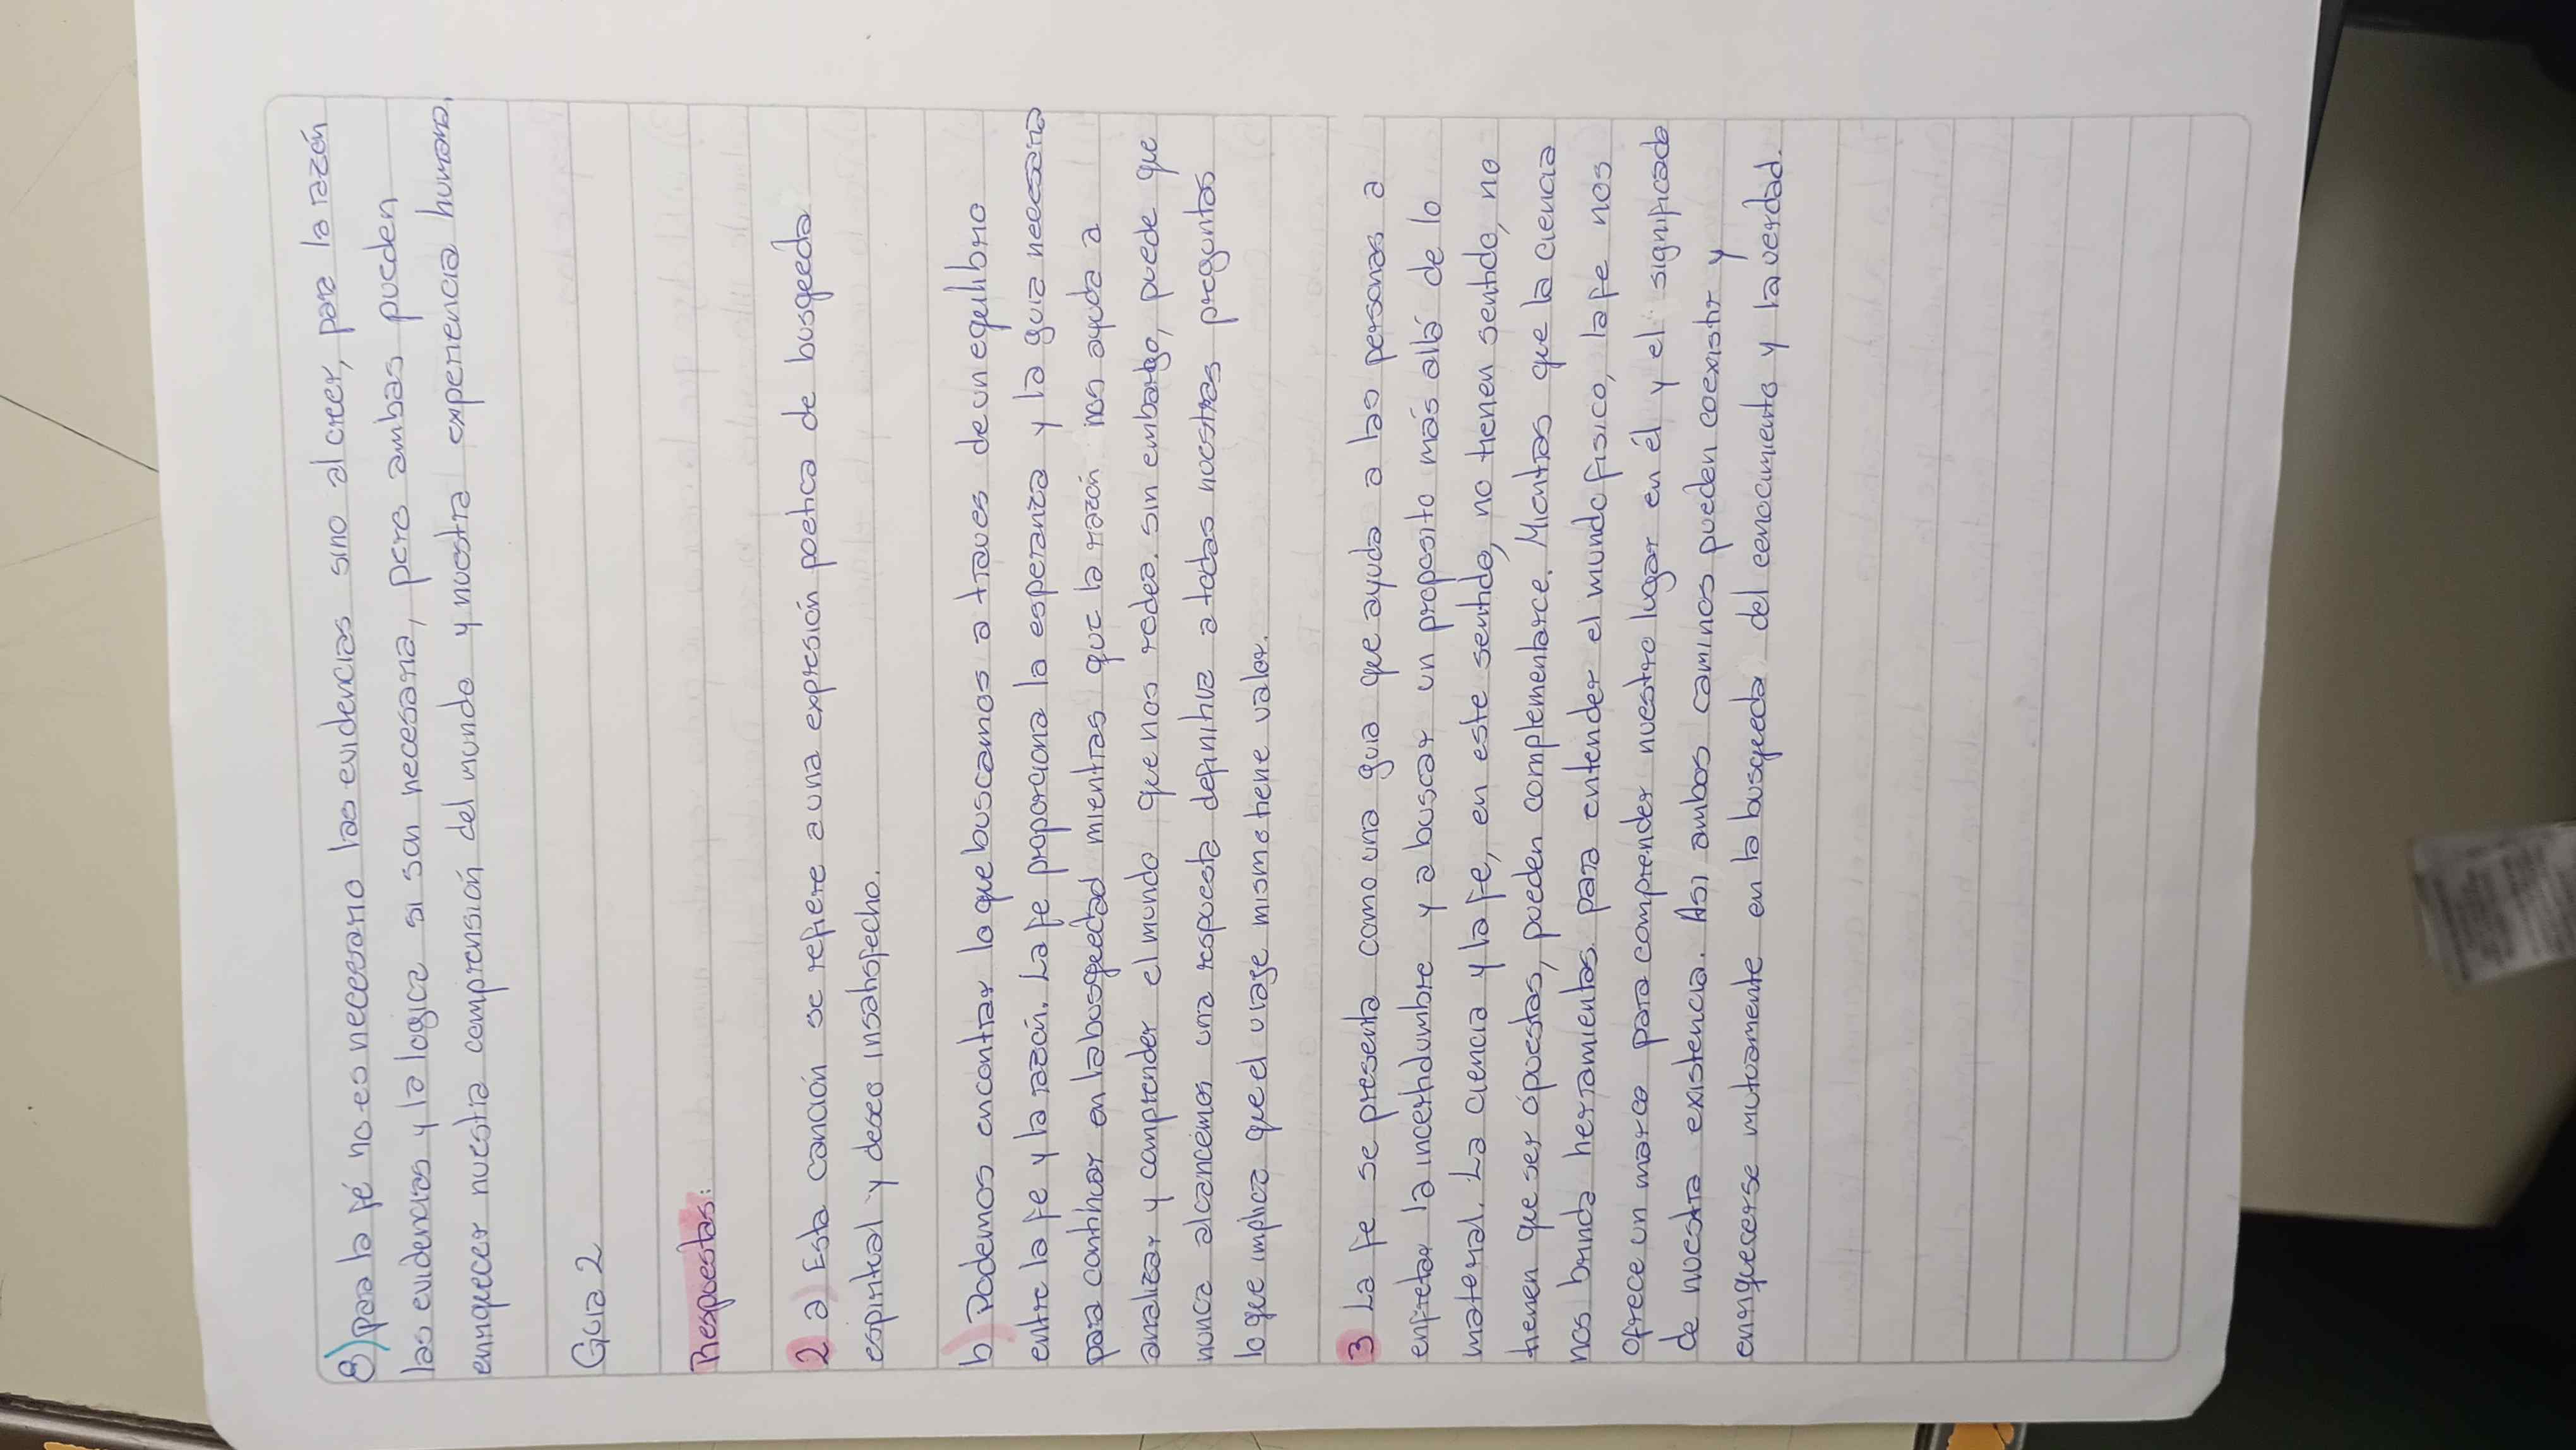 8) para la fé no es necesario las evidencias sino al creer, para la razón
las evidencias y la logica si son necesaria, pero ambas pueden
enriquecer nuestra comprensión del mundo y nuestra experiencia humana.
Guia 2
Respuestas:
2 a) Esta canción se refiere a una expresión poetica de busqeeda
espiritual y deseo insatisfecho.
b) Podemos encontrar lo que buscamos a traves de un equilibrio
entre la fe y la razón. La fe proporciona la esperanza y la guia necesaria
para continuar en la busqeedad mientras que la razón nos ayuda a
analizar y comprender el mundo que nos rodea. sin embargo, puede que
nunca alcancemos una respuesta definitiva a todas nuestras preguntas
lo que implica que el viaje mismo tiene valor.
3 La fe se presenta como una guia que ayuda a las personas a
enfretar la incertidumbre y a buscar un proposito más allá de lo
material. La ciencia y la fe, en este sentido, no tienen sentido, no
tienen que ser opuestas, pueden complementarce. Mientras que la ciencia
nos brinda herramientas para entender el mundo fisico, la fe nos
ofrece un marco para comprender nuestro lugar en él y el significado
de nuestra existencia. Asi ambos caminos pueden coexistir y
enriqueserse mutuamente en la busqeeda del conocimiento y la verdad.